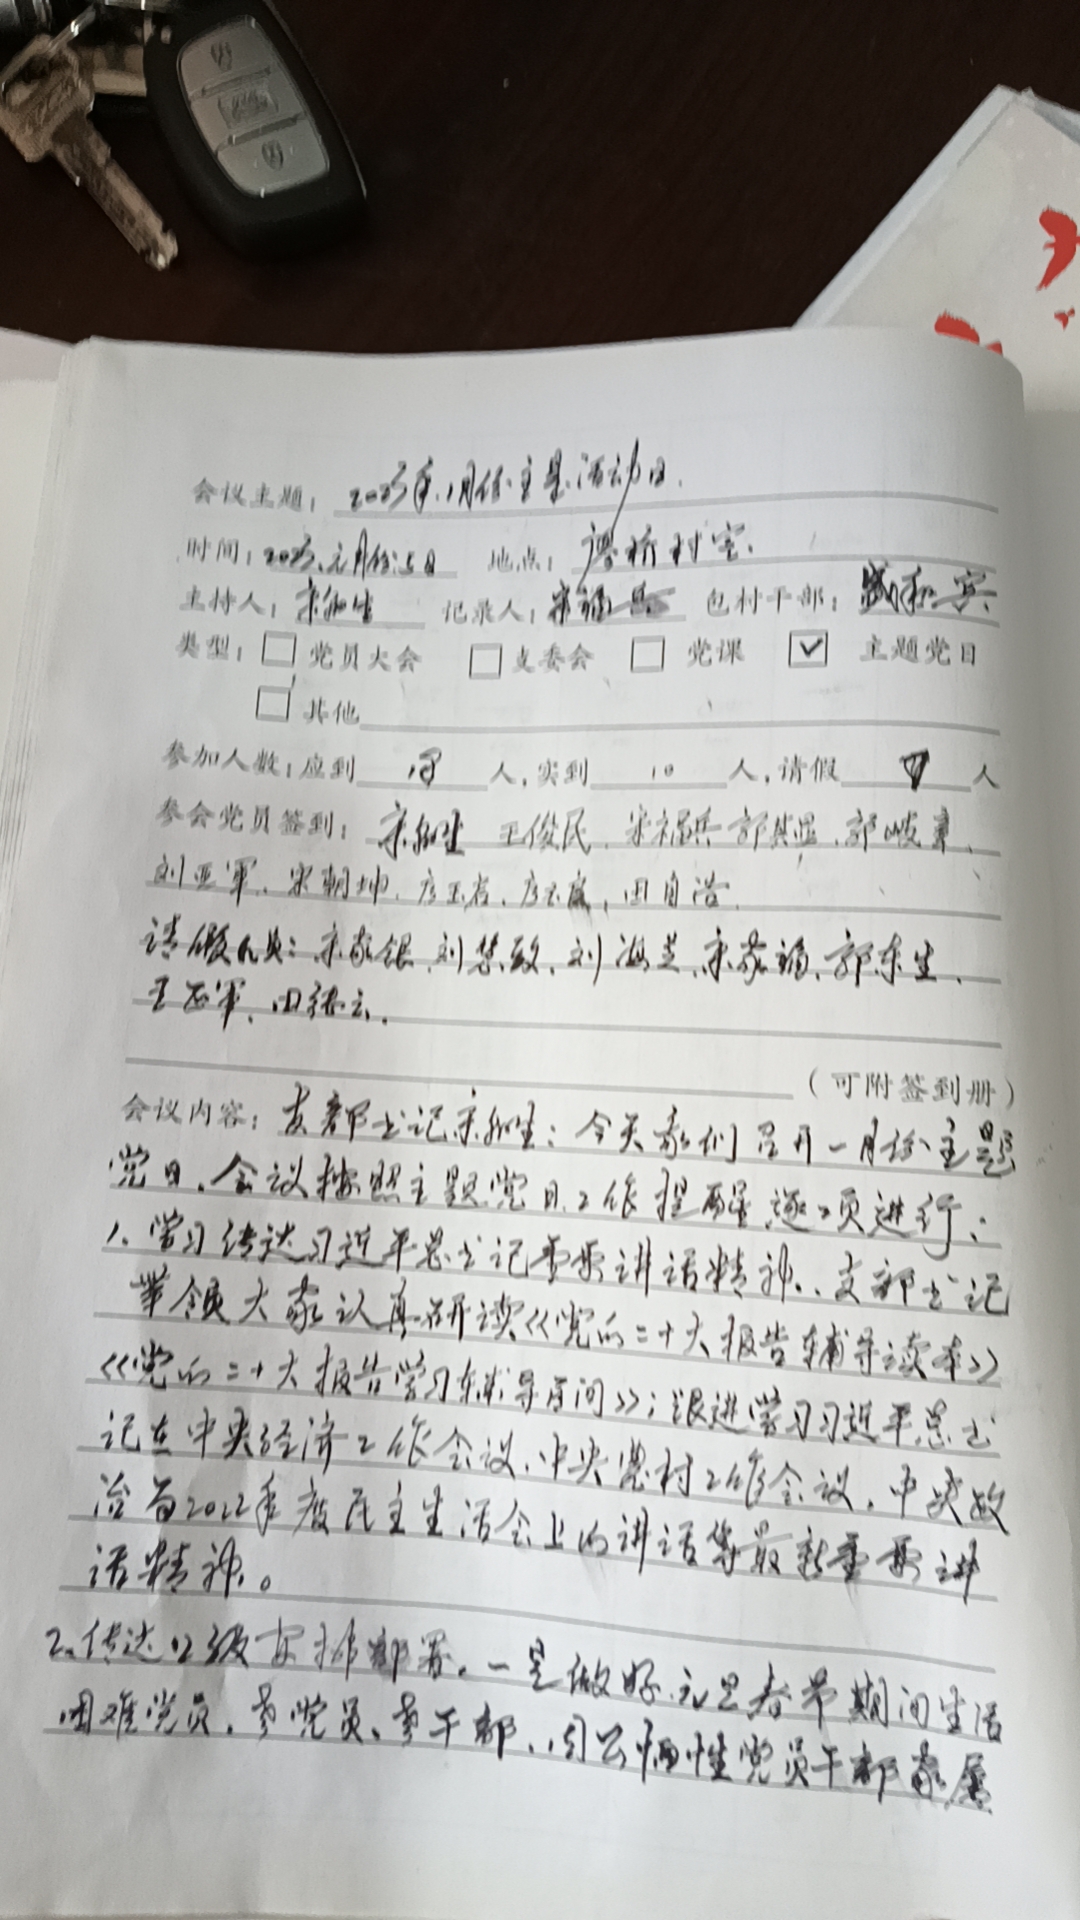 会议主题：2023年1月份主题活动日.
时间：2023.元月份5日 地点：廖桥村室.
主持人：宋 记录人：宋福兵 包村干部：盛和宾
类型：□党员大会 □支委会 □党课 ☑主题党日
□其他
参加人数：应到 人，实到 10 人，请假 7 人
参会党员签到：宋 王俊民．宋福兵 郭 ．郭岐章．
刘亚军．宋朝坤．彦玉 ．彦 ．田自浩．
请假人员：宋家银．刘 ．刘海芝．宋家福．郭东生．
王 军．田 ．
（可附签到册）
会议内容：支部书记宋 ：今天我们召开一月份主题
党日．会议按照主题党日工作提醒逐项进行：
1、学习传达习近平总书记重要讲话精神．．支部书记
带领大家认真研读《党的二十大报告辅导读本》
《党的二十大报告学习辅导百问》；跟进学习习近平总书
记在中央经济工作会议．中央农村工作会议．中央政
治局2022年度民主生活会上的讲话等最新重要讲
话精神。
2、传达上级安排部署．一是做好元旦春节期间生活
困难党员．老党员、老干部．因公牺牲党员干部家属